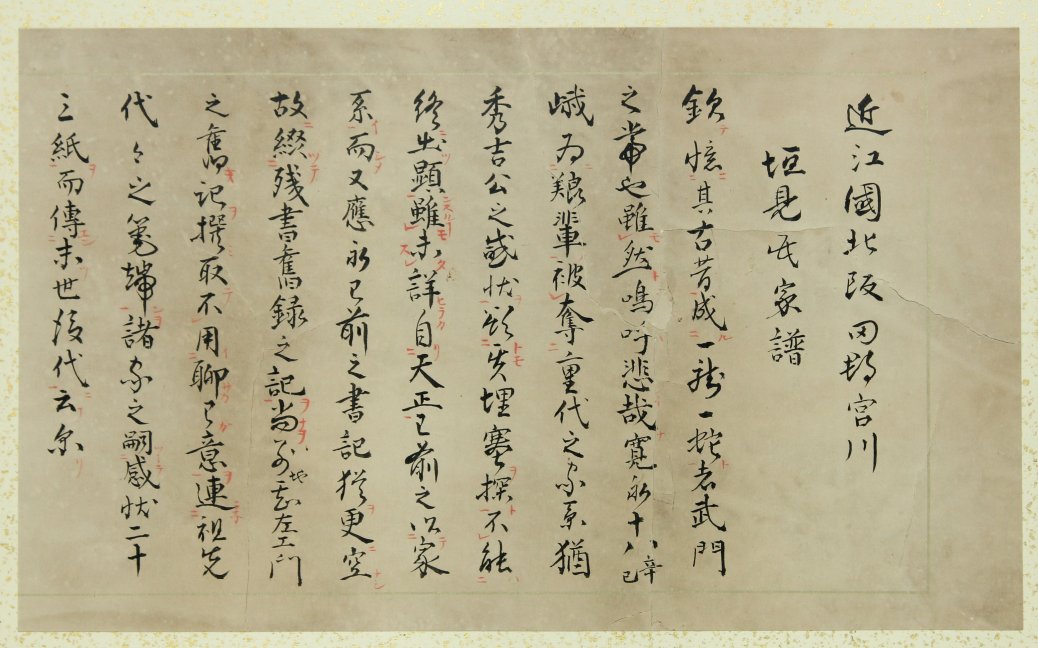 近江國北坂田郡宮川
垣見氏家譜
欽憶其古昔成一龍一蛇者武門
之常也雖然嗚呼悲哉寛永十八辛巳
嵗為艱輩被奪重代之家系猶
秀吉公之感状頒失埋塞探不能
終出顕雖未詳自天正已前之以家
系而又應永已前之書記猶更空
故綴残書舊録之記尚左工門
之舊記撰取不用聊已意連祖先
代々之端諸家之嗣感状二十
三紙而傳末世後代云尓